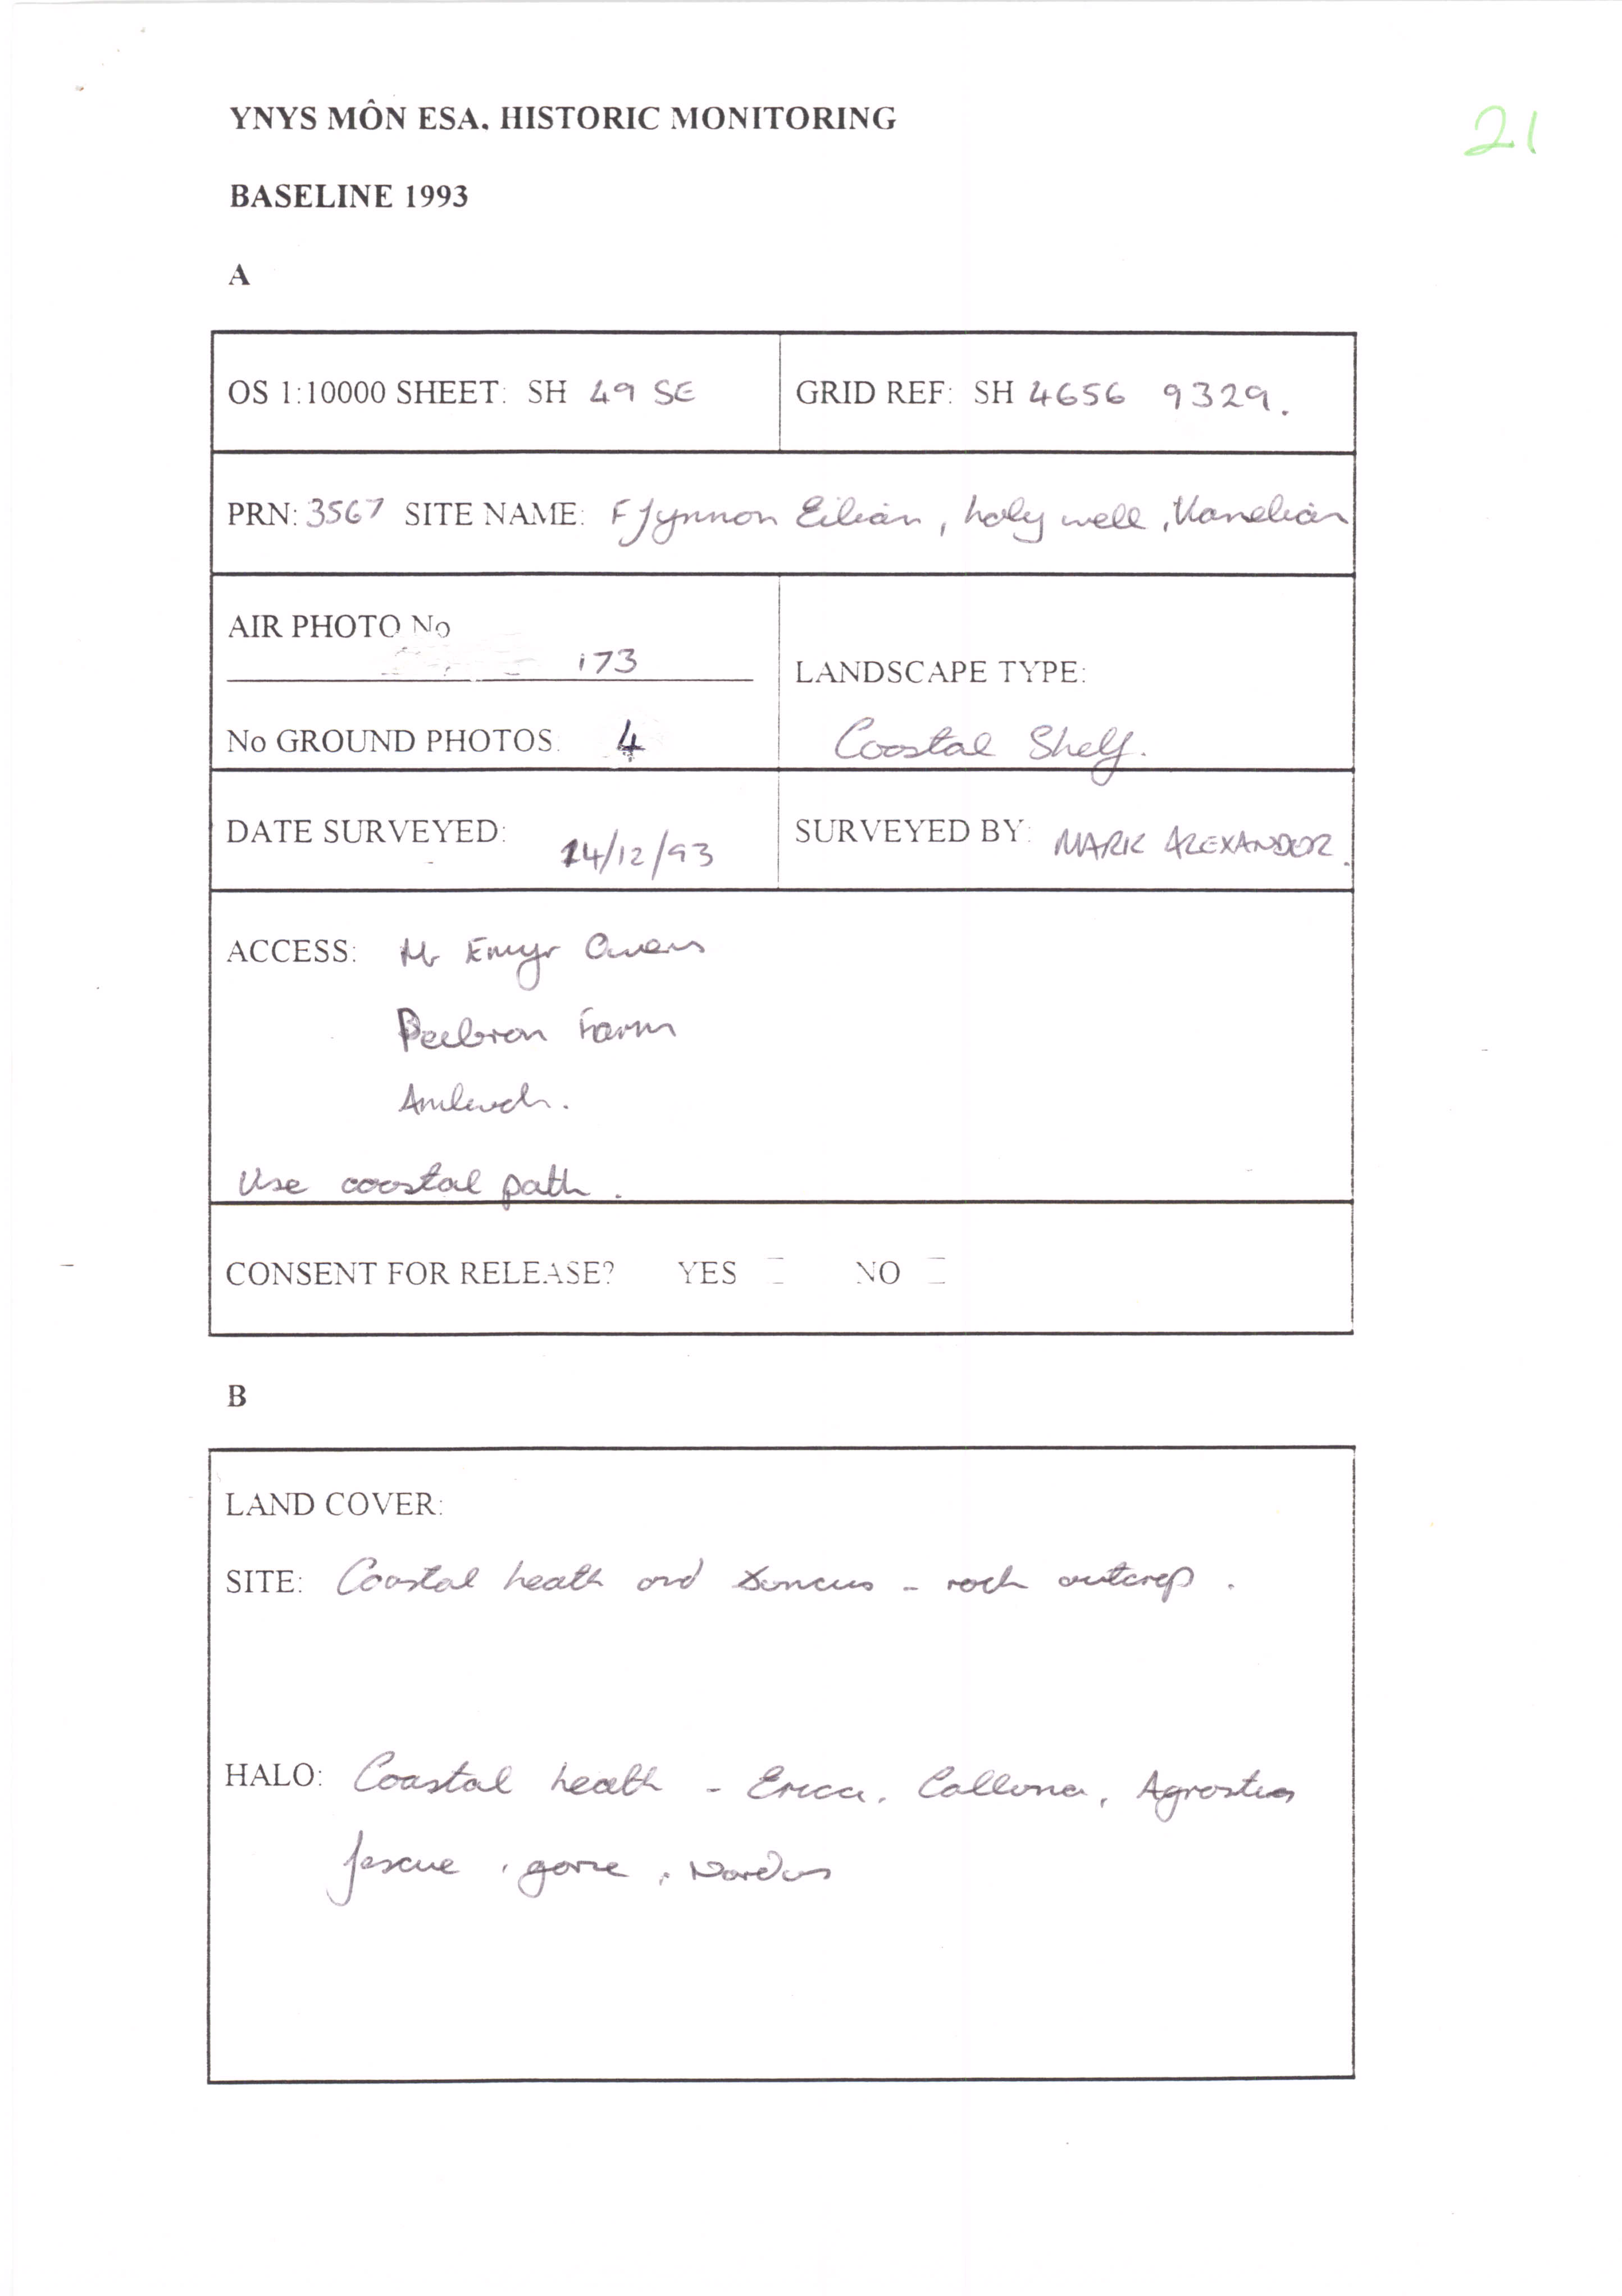 YNYS MÔN ESA. HISTORIC MONITORING
21
BASELINE 1993
A
OS 1:10000 SHEET: SH 49 SE
GRID REF: SH 4656 9329.
PRN: 3567 SITE NAME: Ffynnon Eilian, holy well, Llaneilian
AIR PHOTO No
173
LANDSCAPE TYPE:
No GROUND PHOTOS. 4
Coastal Shelf.
DATE SURVEYED: 14/12/93
SURVEYED BY: MARK ALEXANDER.
ACCESS: Mr Emyr Owens
Farm
Amlwch.
Use coastal path.
CONSENT FOR RELEASE? YES NO
B
LAND COVER:
SITE: Coastal heath and Juncus - rock outcrop.
HALO: Coastal heath - Erica, Calluna, Agrostis
fescue, gorse, Nardus